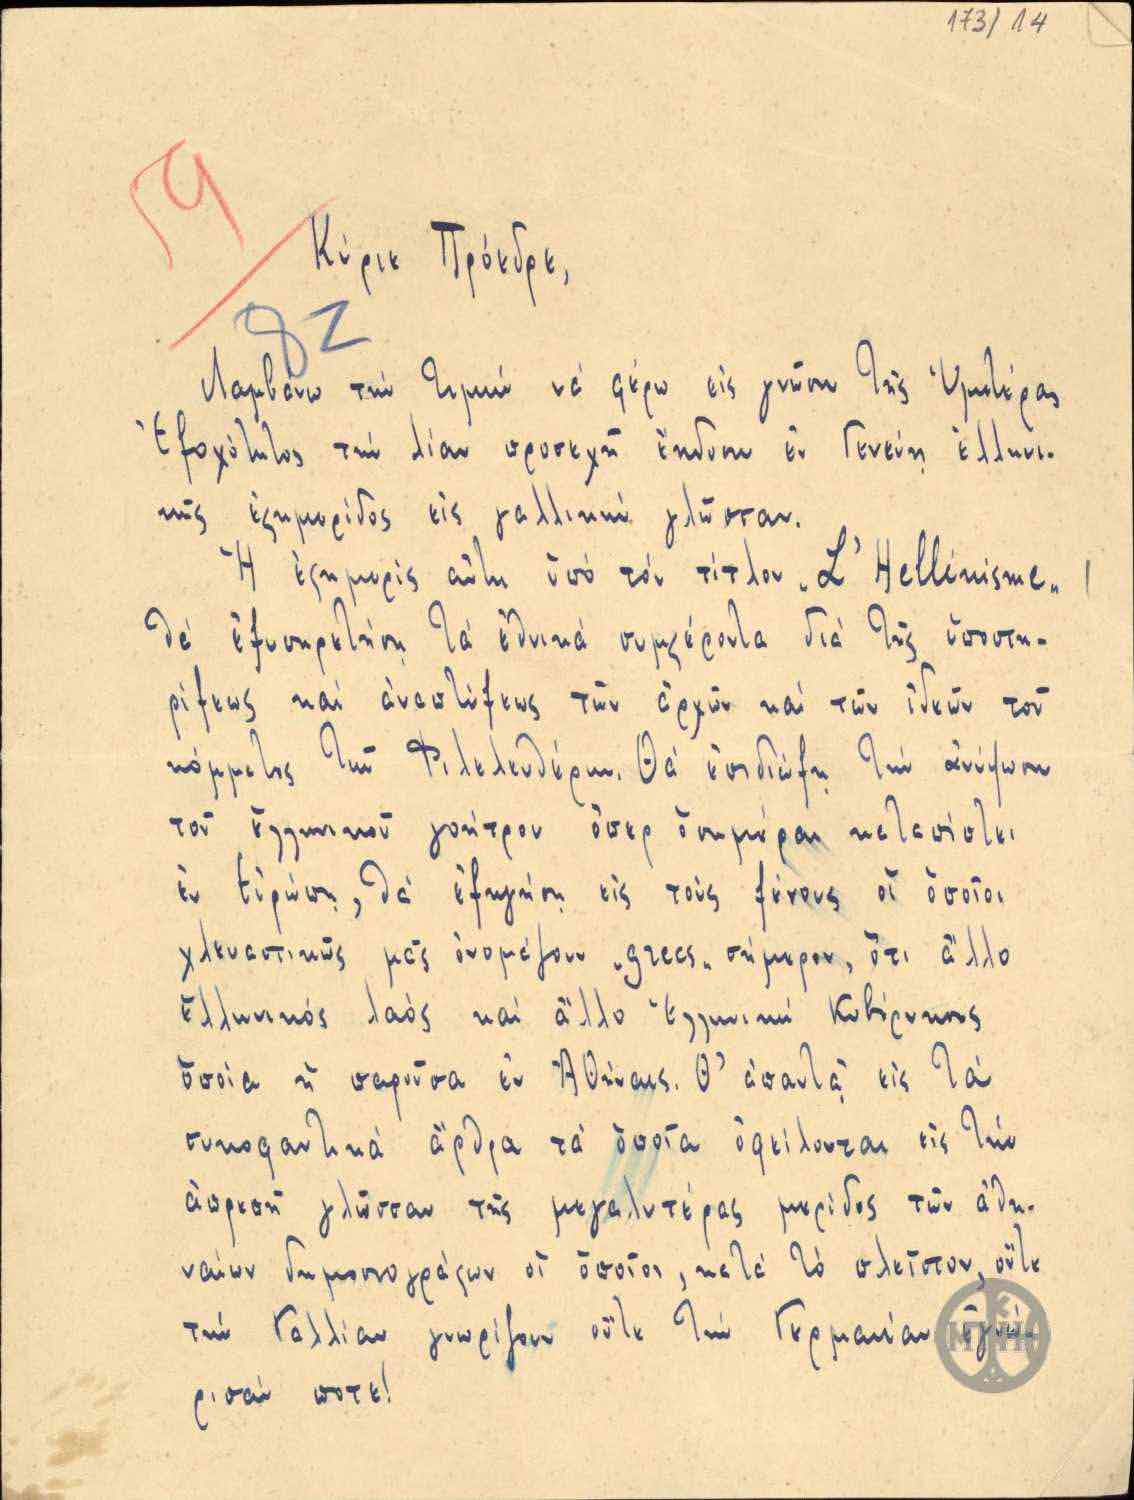 173/14
59
82
Κύριε Πρόεδρε,
Λαμβάνω τήν τιμήν νά φέρω εἰς γνῶσιν τῆς Ὑμετέρας
Ἐξοχότητος τήν λίαν προσεχῆ ἔκδοσιν ἐν Γενεύῃ ἑλληνι-
κῆς ἐφημερίδος εἰς γαλλικήν γλῶσσαν.
Ἡ ἐφημερίς αὕτη ὑπό τόν τίτλον „L'Hellénisme„
θά ἐξυπηρετήσῃ τά ἐθνικά συμφέροντα διά τῆς ὑποστη-
ρίξεως καί ἀναπτύξεως τῶν ἀρχῶν καί τῶν ἰδεῶν τοῦ
κόμματος τῶν Φιλελευθέρων. Θά ἐπιδιώξῃ τήν ἀνύψωσιν
τοῦ ἑλληνικοῦ γοήτρου ὅπερ ὁσημέραι καταπίπτει
ἐν Εὐρώπῃ, θά ἐξηγήσῃ εἰς τούς ξένους οἵ ὁποῖοι
χλευαστικῶς μᾶς ὀνομάζουν „grecs„ σήμερον, ὅτι ἄλλο
ἑλληνικός λαός καί ἄλλο Ἑλληνική Κυβέρνησις
ὁποία ἡ παροῦσα ἐν Ἀθήναις. Θ' ἀπαντᾷ εἰς τά
συκοφαντικά ἄρθρα τά ὁποῖα ὀφείλονται εἰς τήν
ἀπρεπῆ γλῶσσαν τῆς μεγαλυτέρας μερίδος τῶν ἀθη-
ναίων δημοσιογράφων οἵ ὁποῖοι, κατά τό πλεῖστον, οὔτε
τήν Γαλλίαν γνωρίζουν οὔτε τήν Γερμανίαν ἐγνώ-
ρισαν ποτε!